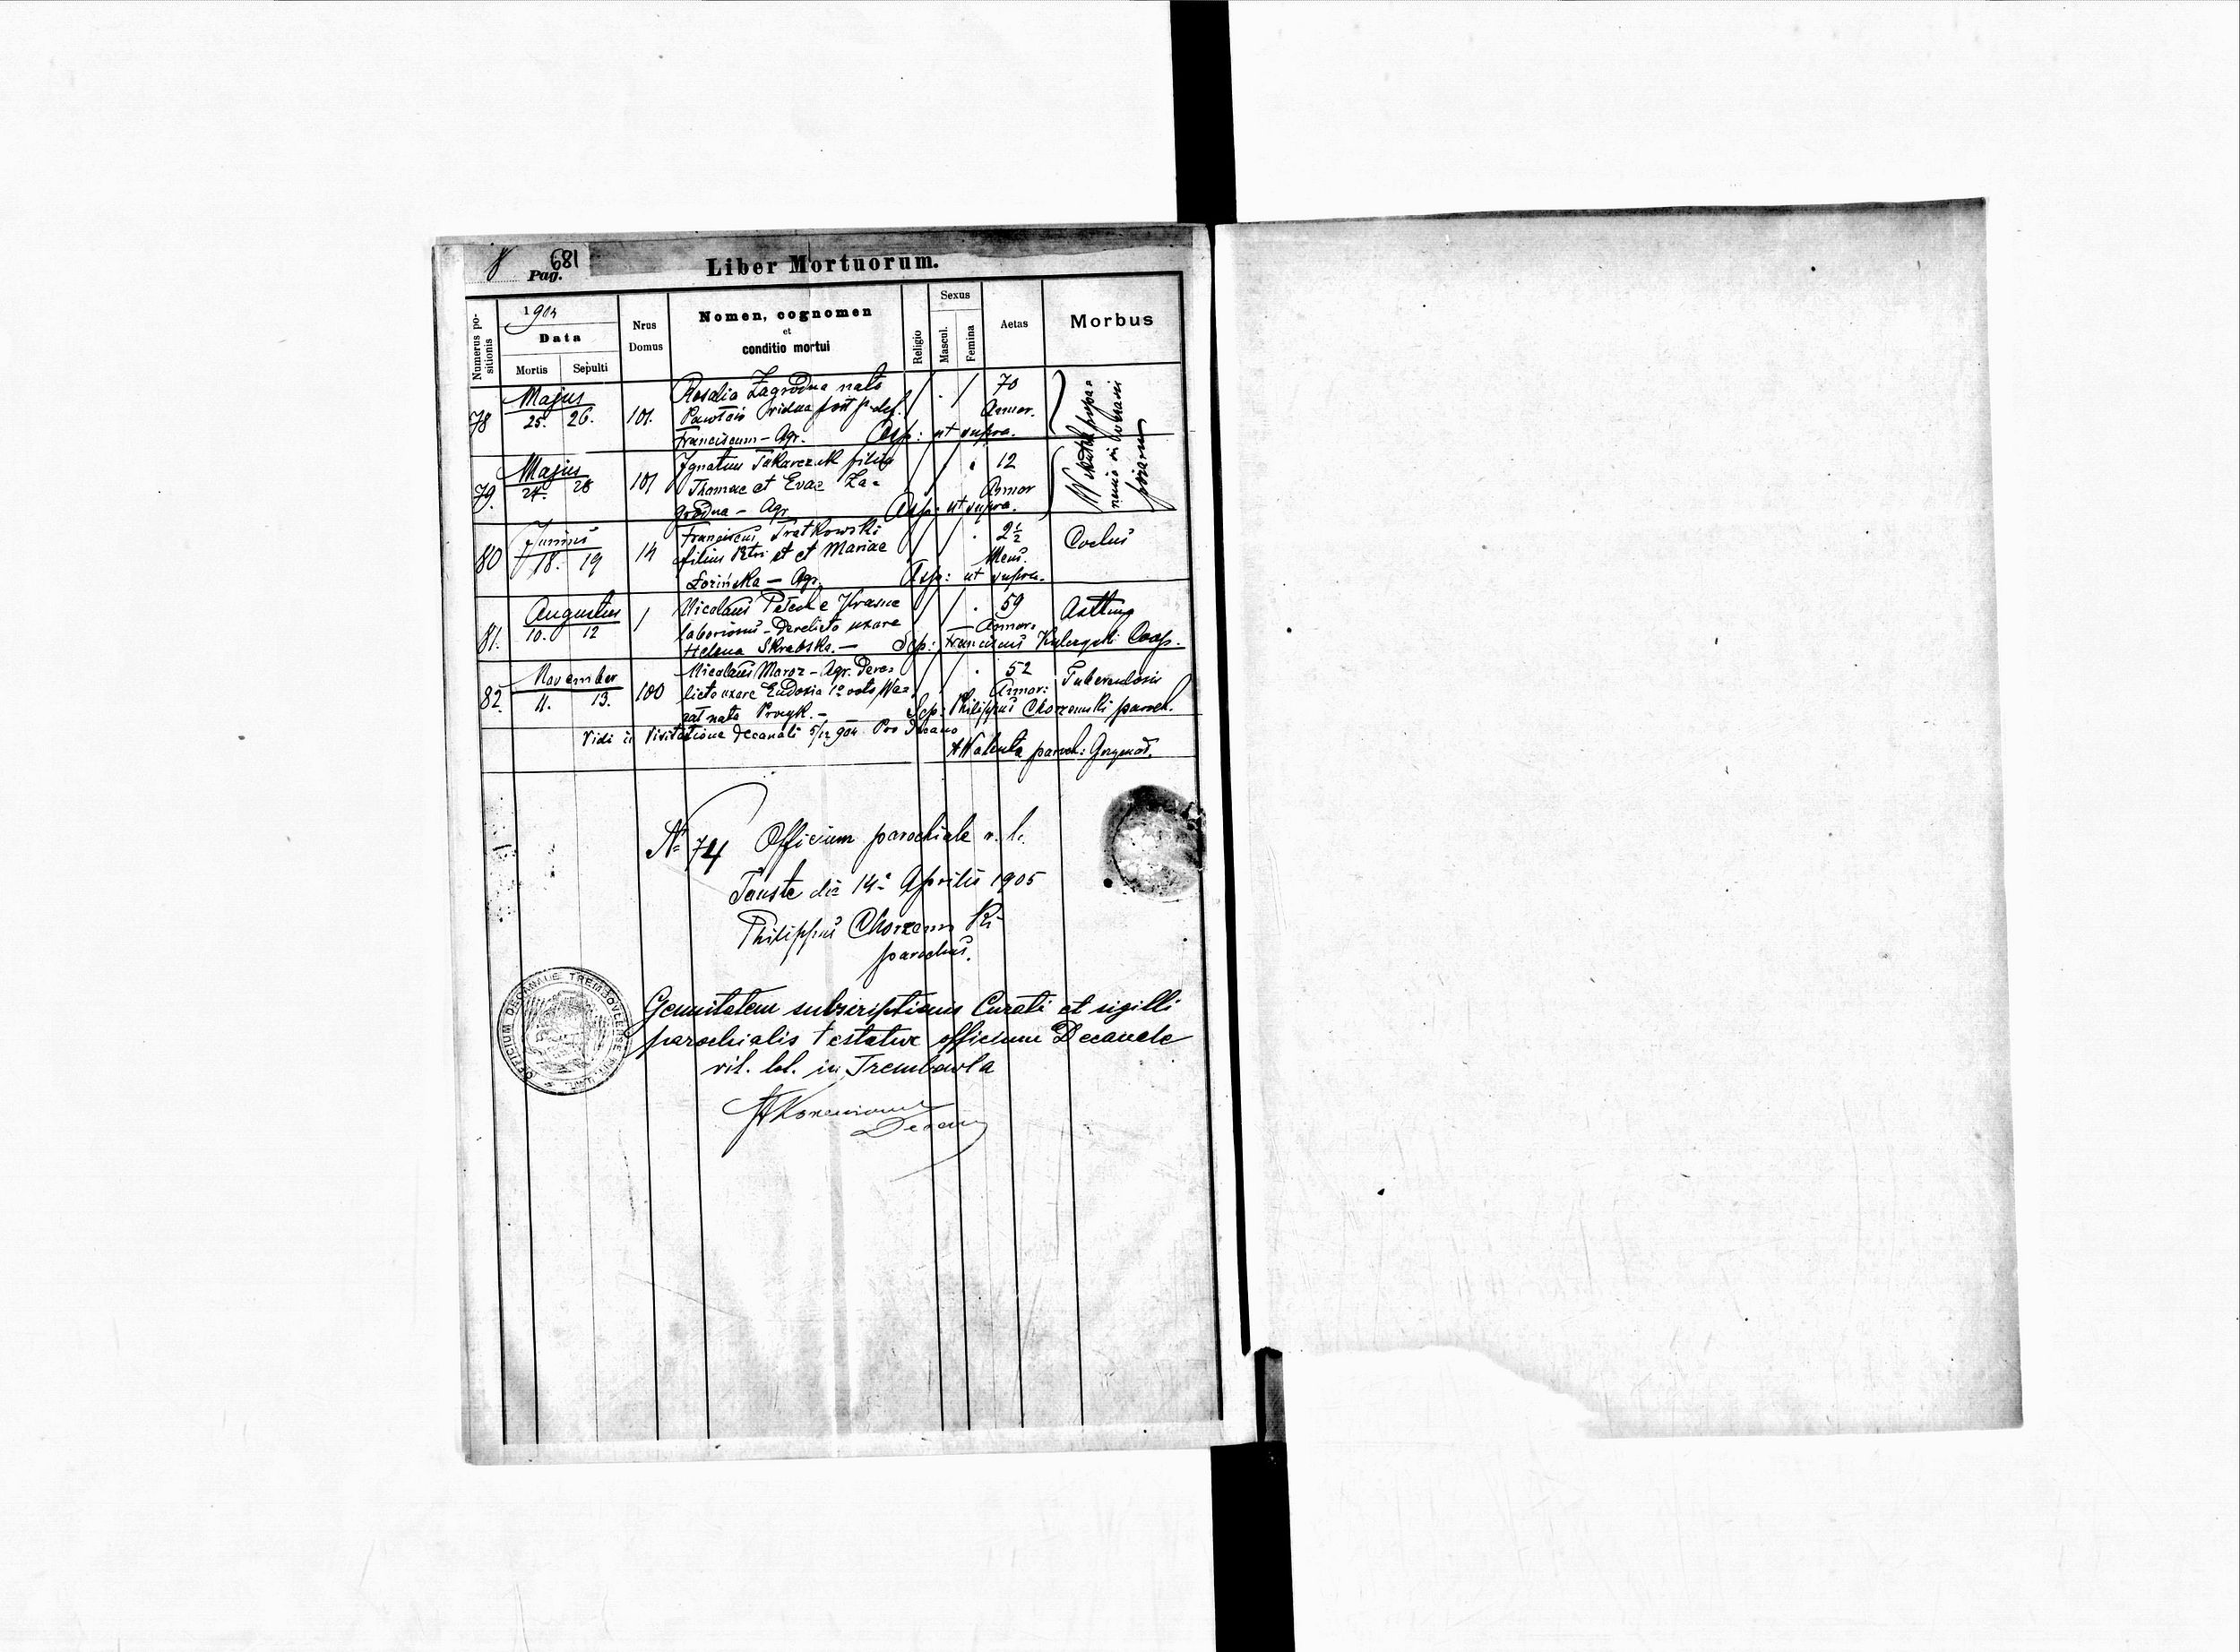 8 Pag. 681
Liber Mortuorum.
Numerus positionis
1904
Data
Mortis Sepulti
Nrus Domus
Nomen, cognomen
et
conditio mortui
Religio
Sexus
Mascul. Femina
Aetas
Morbus
78 Majus 25. 26. 101. Rosalia Zagrodna nata 70
vidua post p. def. Annor.
Franciscum - Agr. Asp: ut supra.
79. Majus 27. 28 101 Ignatius Tokarczuk filius 12
Thomae et Evae Za= Annor
grodna - Agr. Asp: ut supra.
80 Junius 18. 19 14 Franciscus Fratkowski 2½
filius Petri et et Mariae Mens.
Łozińska - Agr. Asp: ut supra.
81. Augustus 10. 12 1 Nicolaus e 59
laboriosus - Derelicta uxore Annor.
Helena Skrabska. - Sep: Franciscus Coop.
82. November 11. 13. 100 Nicolaus Moroz - Agr. Dere= 52 Tuberculosis
licta uxore Eudoxia 1º voto Annor:
nata - Sep: Philippus Chorzemski paroch.
Vidi in Visitatione Decanali 5/12 904 Pro Decano
paroch:
Nº 74 Officium parochiale r. l.
die 14º Aprilis 1905
Philippus Chorzemski
parochus.
Genuitatem subscriptionis Curati et sigilli
parochialis testatur officium Decanale
rit. lat. in Trembowla
Decan
OFFICIUM DECANALE TREMBOVLENSE RIT. LAT.